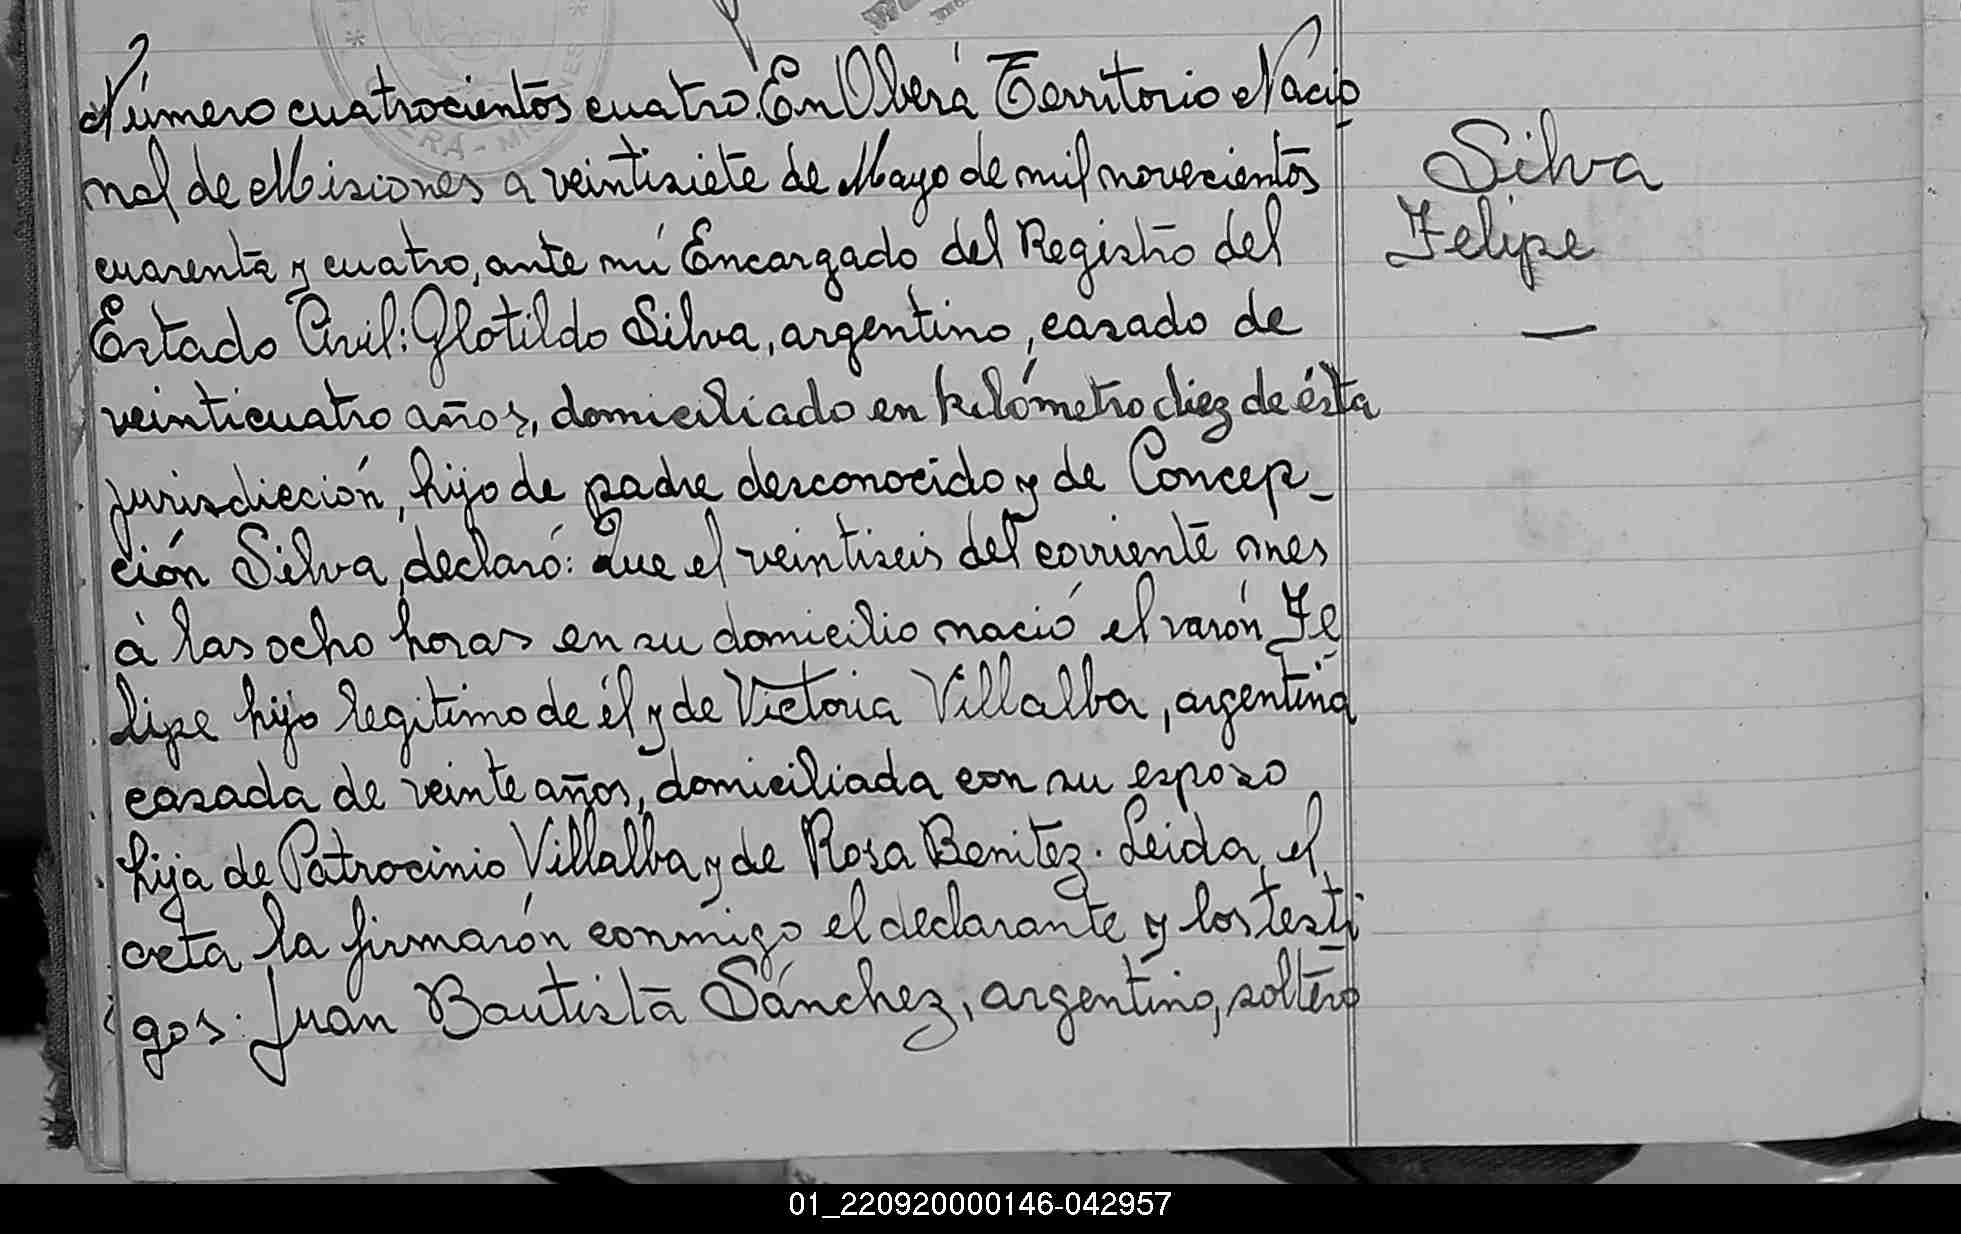 Número cuatrocientos cuatro. En Oberá Territorio Nacio
nal de Misiones a veintisiete de Mayo de mil novecientos
cuarenta y cuatro, ante mí Encargado del Registro del
Estado Civil: Glotildo Silva, argentino, casado de
veinticuatro años, domiciliado en kilómetro diez de ésta
jurisdicción, hijo de padre desconocido y de Concep-
ción Silva, declaró: Que el veintiseis del corriente mes
á las ocho horas en su domicilio nació el varón Fe
lipe hijo legitimo de él y de Victoria Villalba, argentina
casada de veinte años, domiciliada con su esposo
hija de Patrocinio Villalba y de Rosa Benitez. Leida el
acta la firmarón conmigo el declarante y los testi
gos: Juan Bautista Sánchez, argentino, soltero
Silva
Felipe
ERÁ - MISIONES
01_220920000146-042957